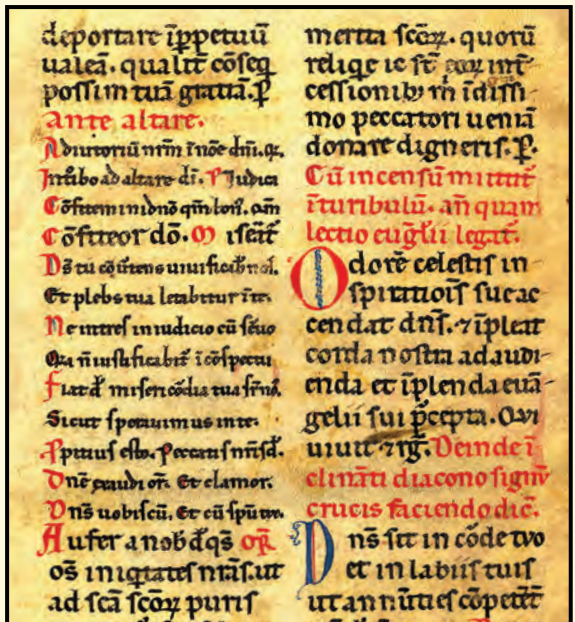 deportare īp̄petuū
ualeā. qualit̄ cōseq̄
possim tuā gratiā. P̄
ante altare.
Adiutoriū nr̄m ī noē dn̄i. Q̄.
Introibo ad altare dī. P̄ Iudica
Cōfitemini dn̄o qm̄ bon̄. Qm̄
Cōfiteor dō. M iseāt̄
Ds̄ tu cōūtens uiuificab̄ nos.
Et plebs tua letabitur ī te.
Ne intres in iudicio cū s̄uo
Qia n̄ iustificabit̄ ī cōspectu
Fiat dn̄e misericōdia tua s̄ nos.
Sicut sperauimus in te.
Dn̄e exaudi or̄. Et clamor.
Dn̄s uobiscū. Et cū sp̄u tuo.
Aufer a nob̄ dq̄s om̄
os̄ iniq̄tates nr̄as. ut
ad sc̄a sc̄oꝝ puris
merita sc̄oꝝ. quorū
reliqe ic st̄ eoꝝ int̄
cessionibꝫ m̄ īdissi-
mo peccatori ueniā
donare digneris. P̄.
Cū incensū mittit̄
ī turibulū. an̄ quam
lectio euḡlii legat̄.
Odorē celestis in
spiratiois̄ sue ac
cendat dn̄s. ⁊ īpleat
corda nostra ad audi-
enda et īplenda euā-
gelii sui p̄cepta. Qvi
uiuit ⁊ rḡ. Deinde ī
clināti diacono signū
crucis faciendo dic̄.
Dn̄s sit in cōde tvo
et in labiis tuis
ut an̄nūties cōpetēt̄